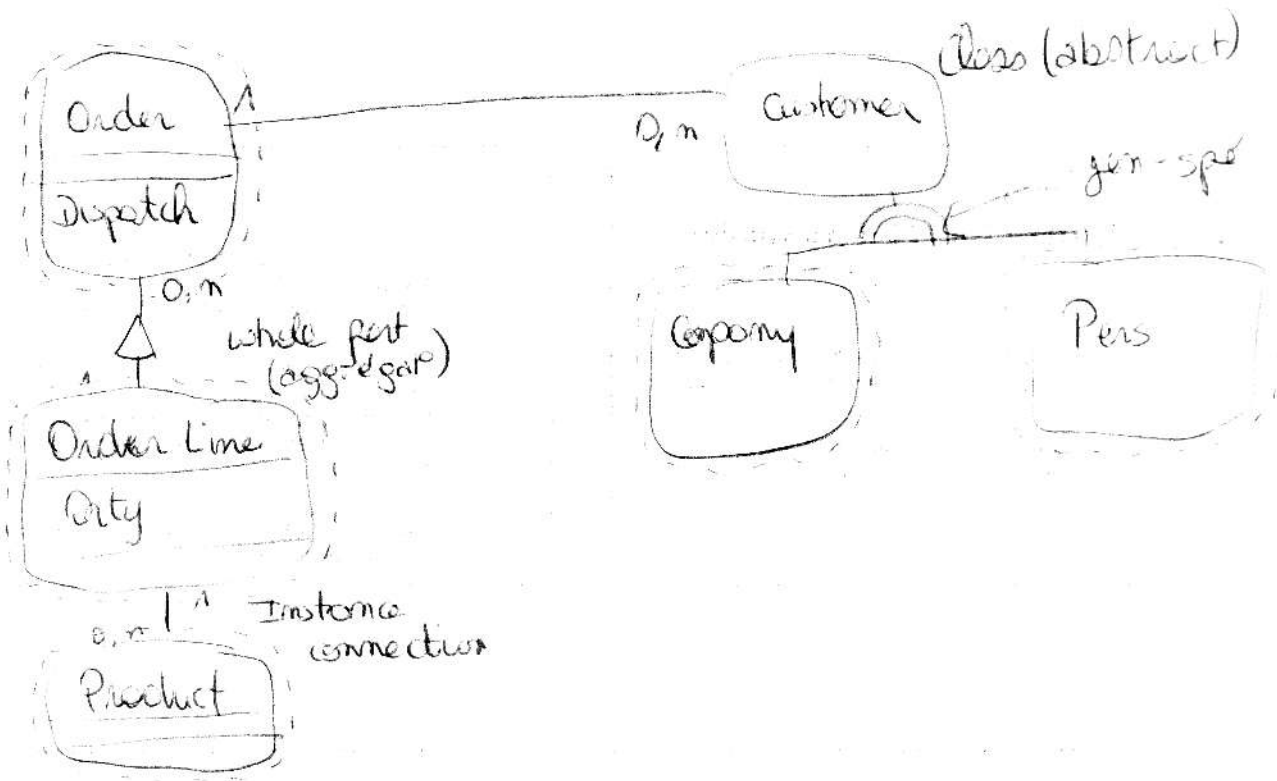 Class (abstract)
Order
1
0, n
Customer
gen-spé
Dispatch
0, n
whole part
(aggrégat°)
Company
Pers
1
Order Line
Qty
1
Instance
0, n
connection
Product